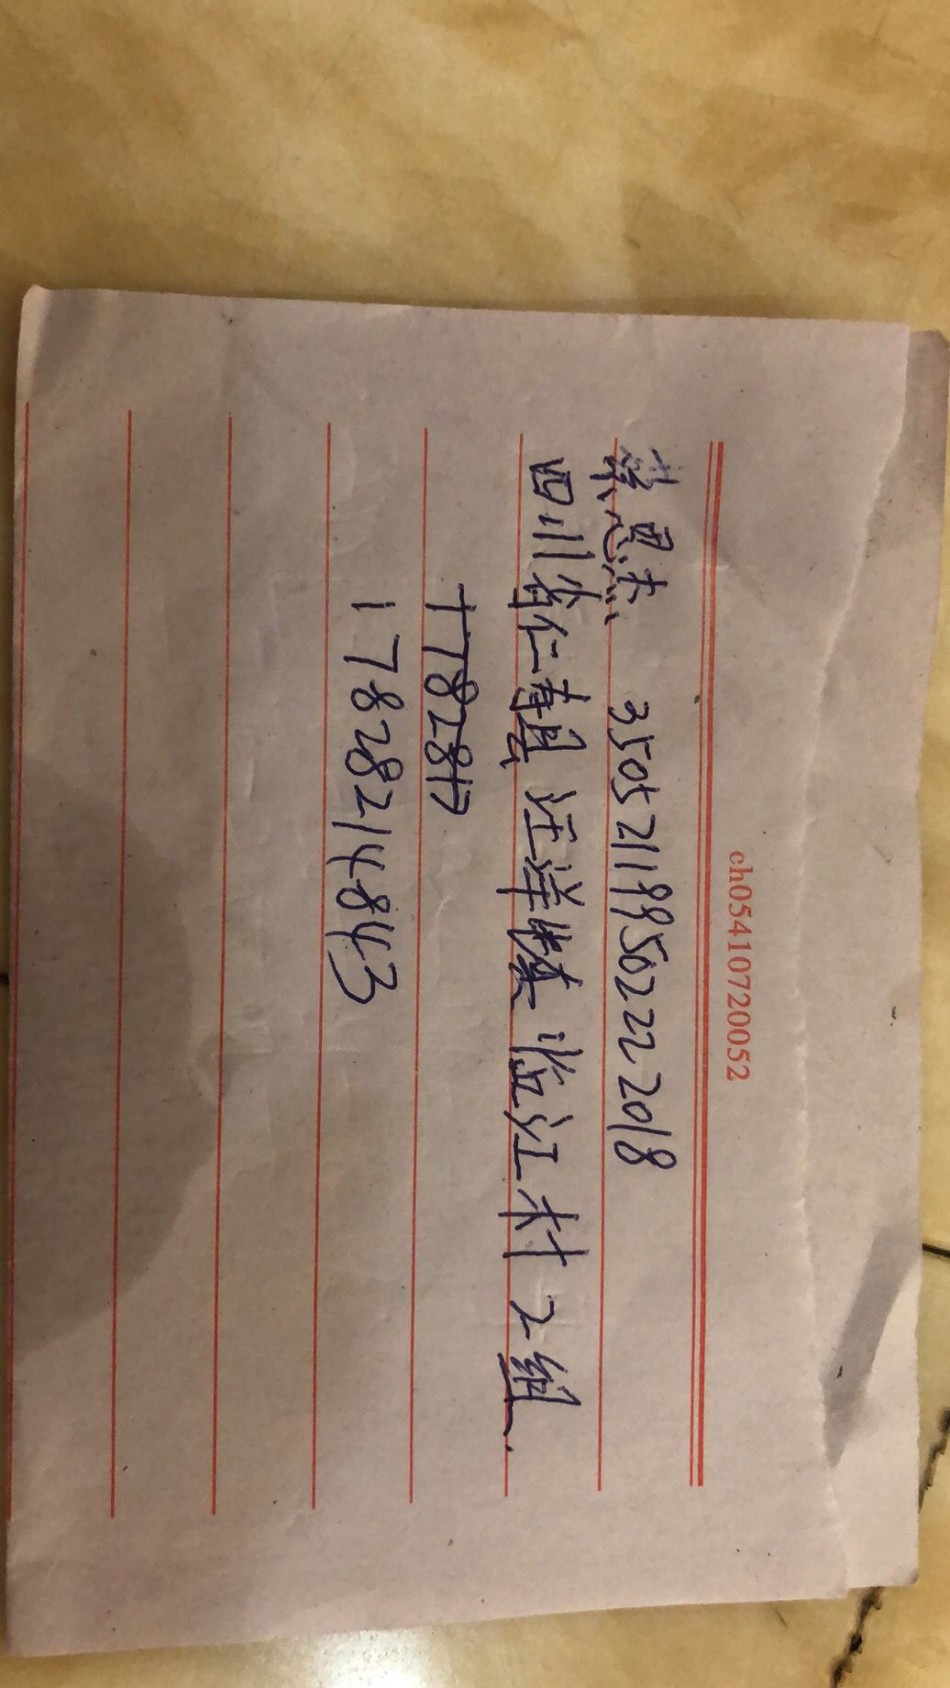 ch05410720052
蔡恩杰 350521199502222018
四川省仁寿县 汪洋镇 临江村 2组
1782817
17828214843